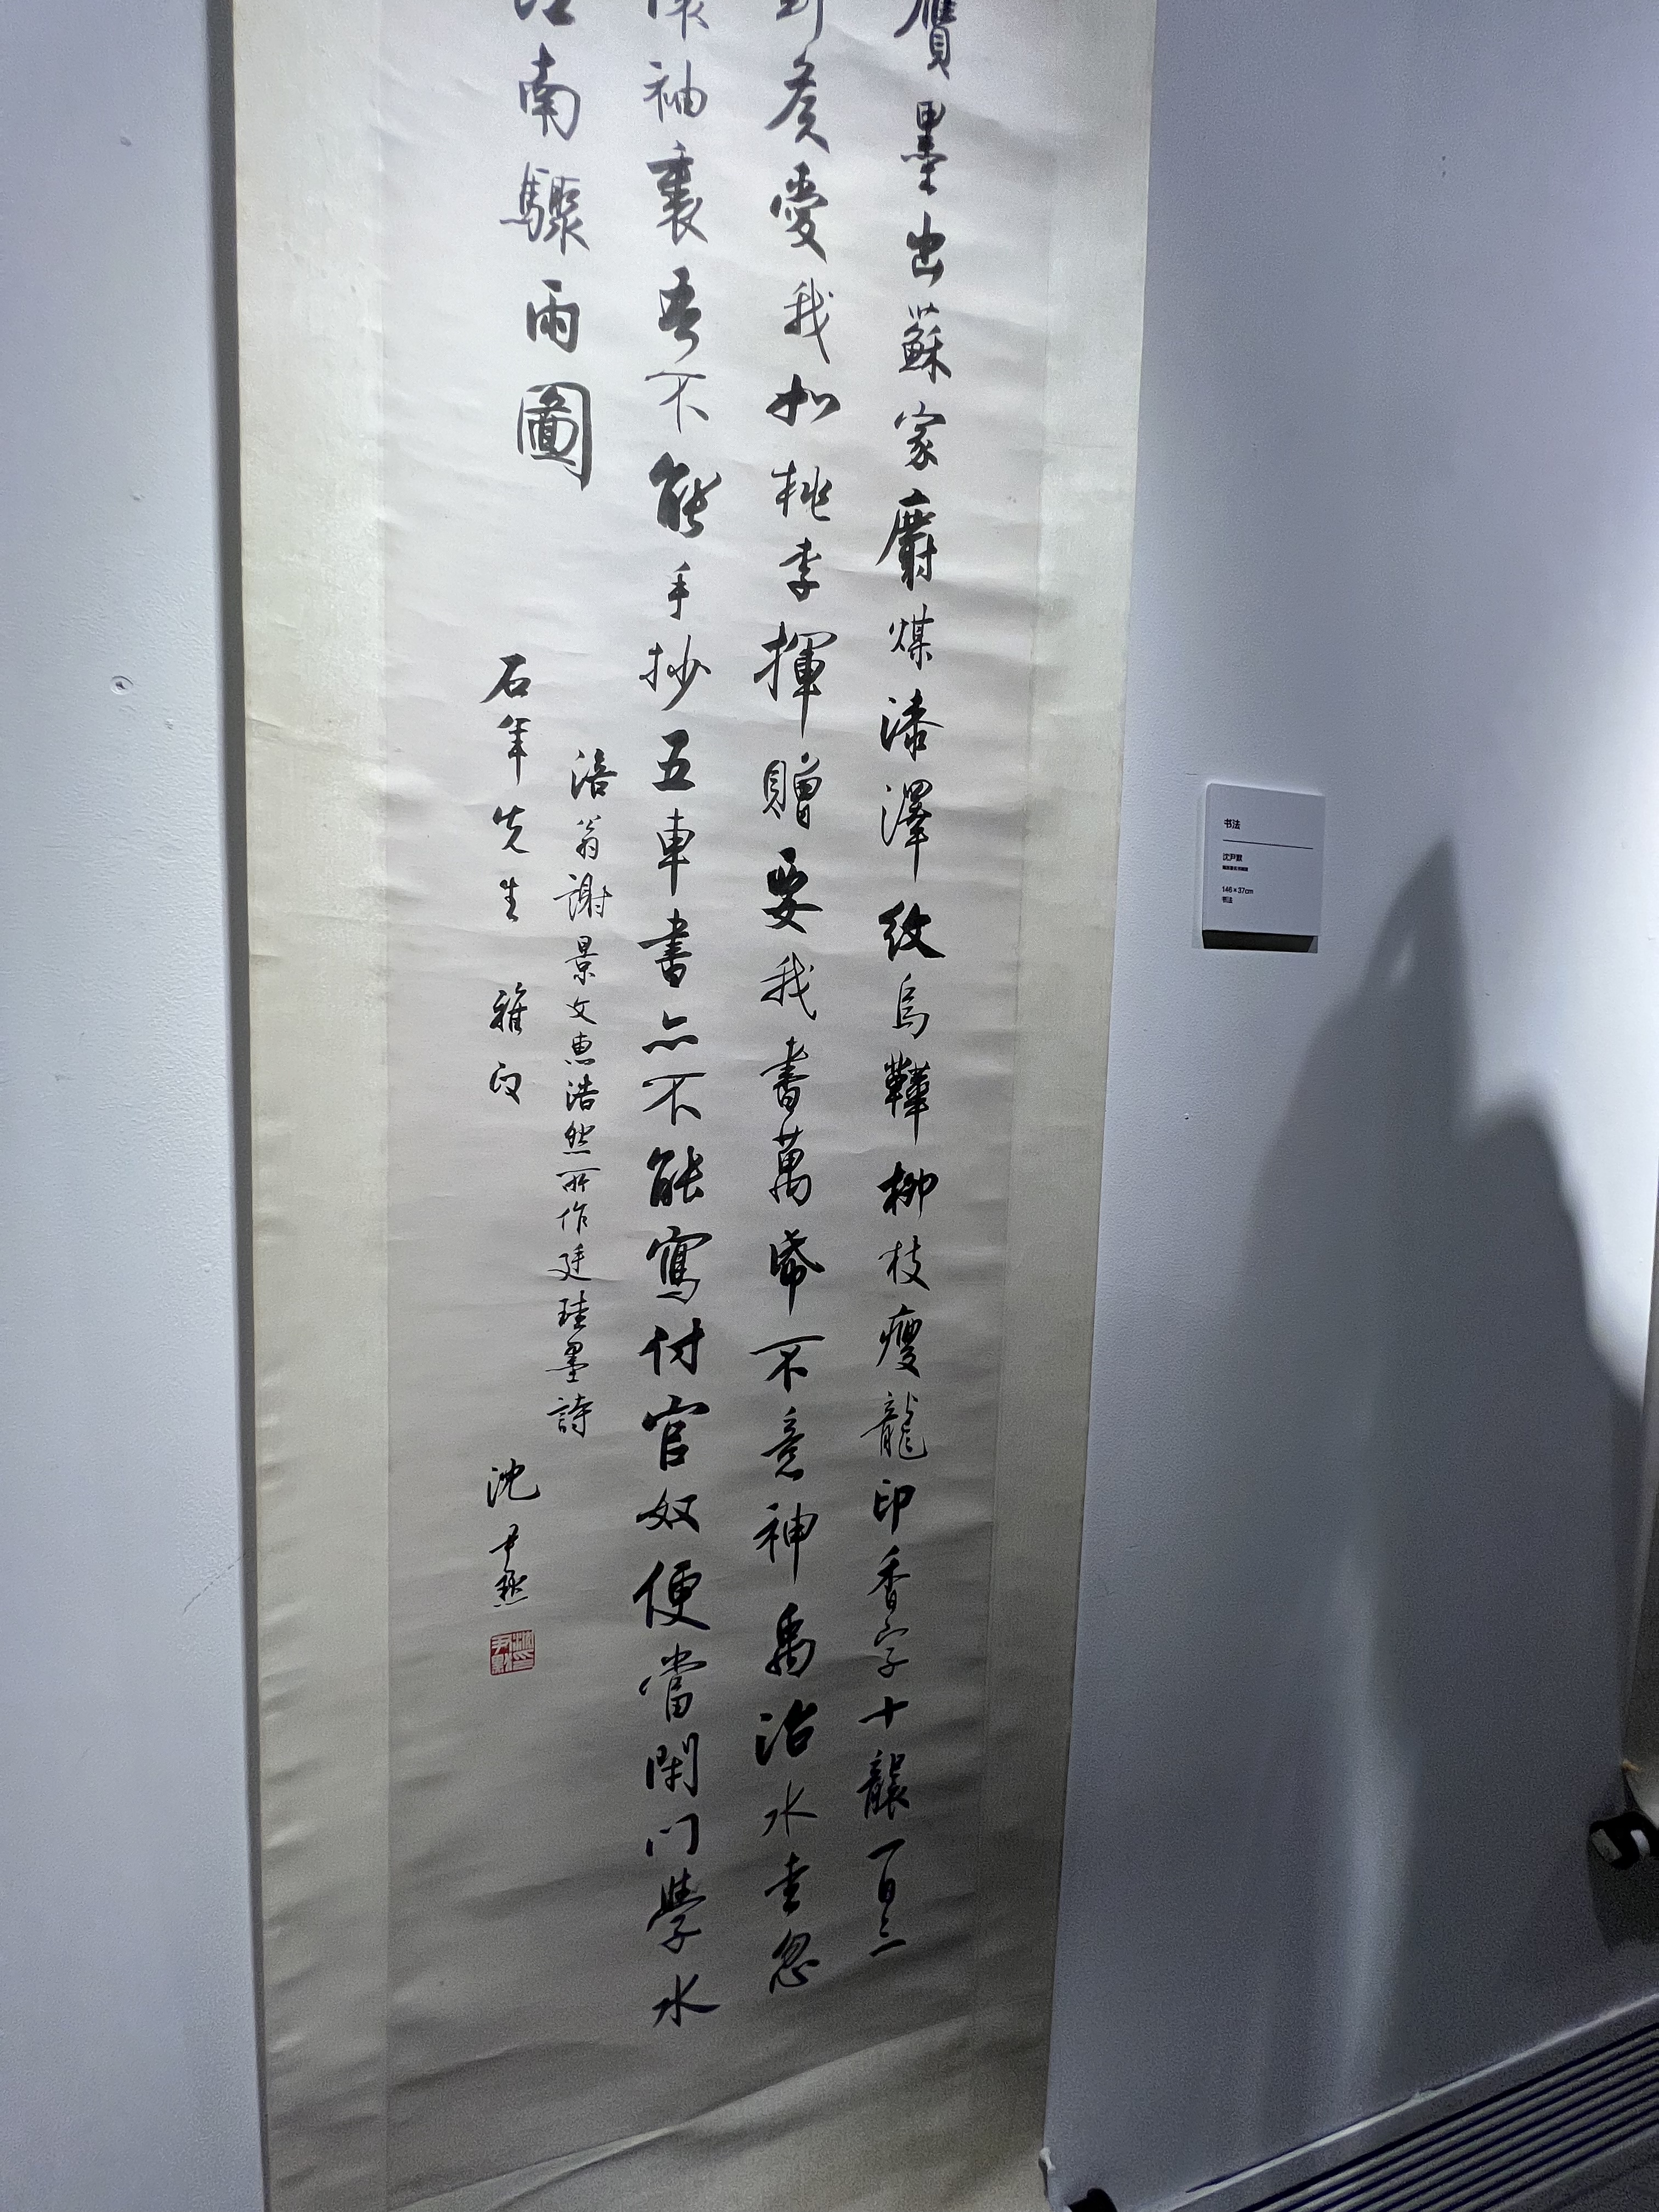 贗墨出蘇家麝煤漆澤紋烏鞾柳枝瘦龍印香字十襲一日三
侯愛我如桃李揮贈要我書萬帋不意神禹治水圭忽
袖裏吾不能手抄五車書亦不能寫付官奴便當閉門學水
南驟雨圖
涪翁謝景文惠浩然所作廷珪墨詩
石年先生 雅
沈尹默
书法
沈尹默
146×37cm
书法